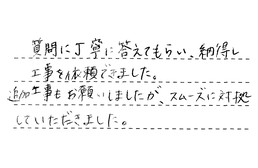 質問に丁寧に答えてもらい、納得し
工事を依頼できました。
追加工事もお願いしましたが、スムーズに対処
していただきました。